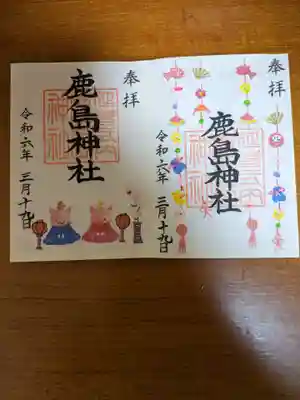 奉拝
鹿島神社
令和六年 三月十九日
奉拝
鹿島神社
令和六年 三月十九日